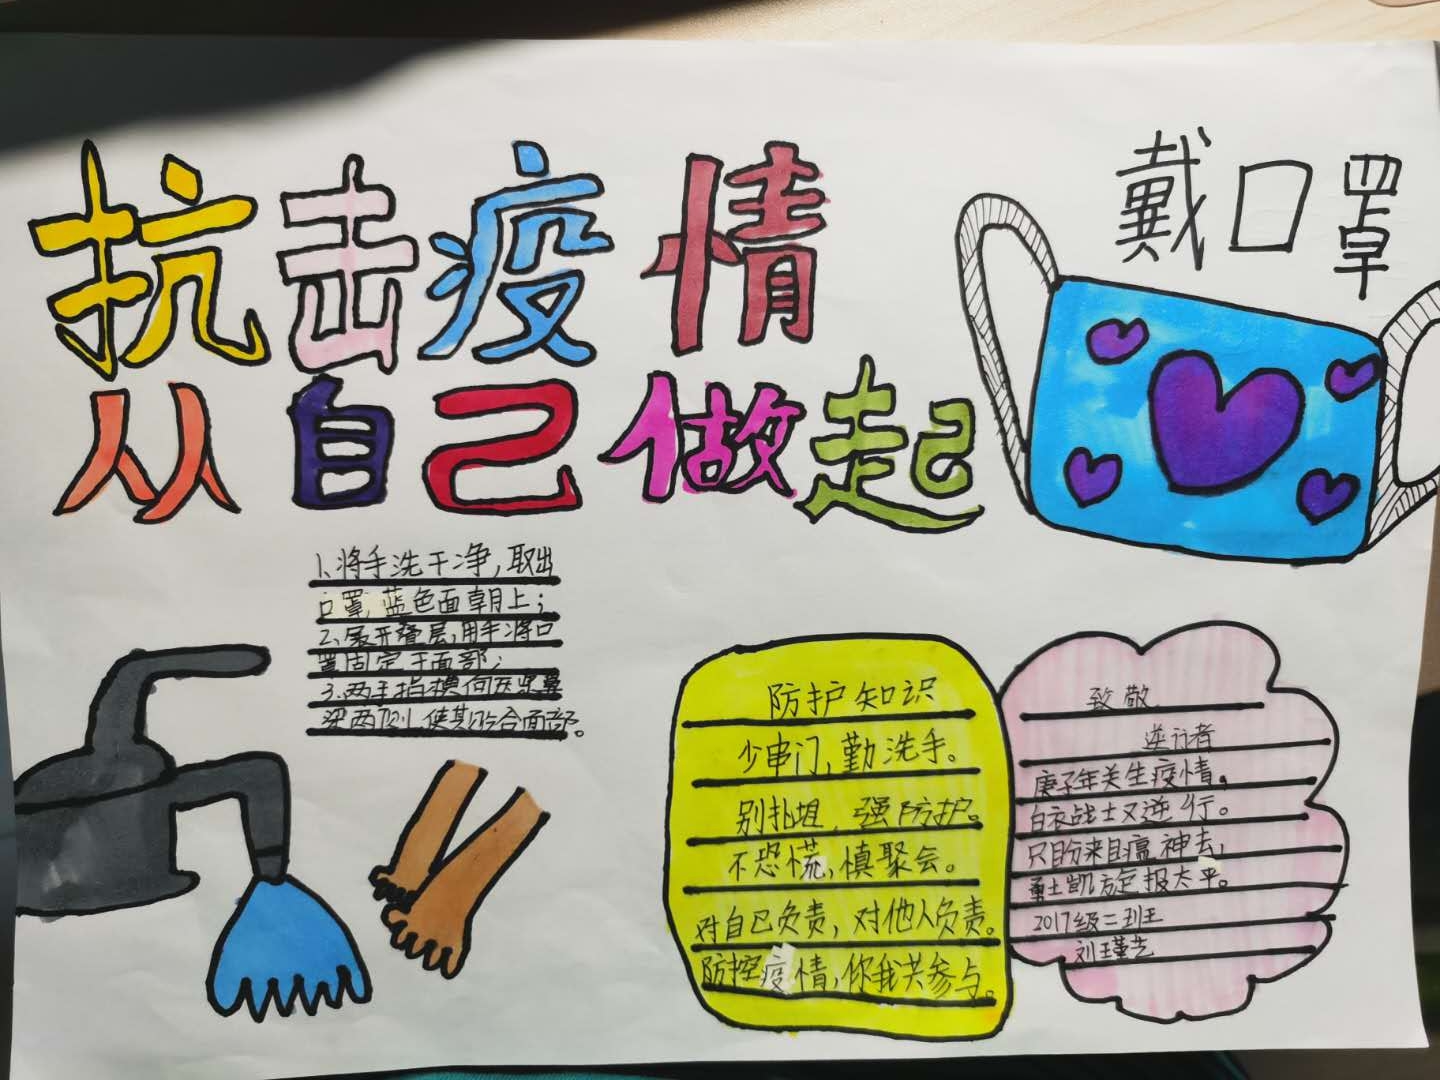 抗击疫情
从自己做起
戴口罩
1、将手洗干净,取出
口罩,蓝色面朝上;
2、展开叠层,用手将口
罩固定于面部;
3、两手指横向按紧鼻
梁两侧,使其贴合面部。
防护知识
少串门,勤洗手。
别扎堆,强防护。
不恐慌,慎聚会。
对自己负责,对他人负责。
防控疫情,你我共参与。
致敬
逆行者
庚子年关生疫情,
白衣战士又逆行。
只盼来日瘟神去,
勇士凯旋报太平。
2017级二班
刘瑾艺